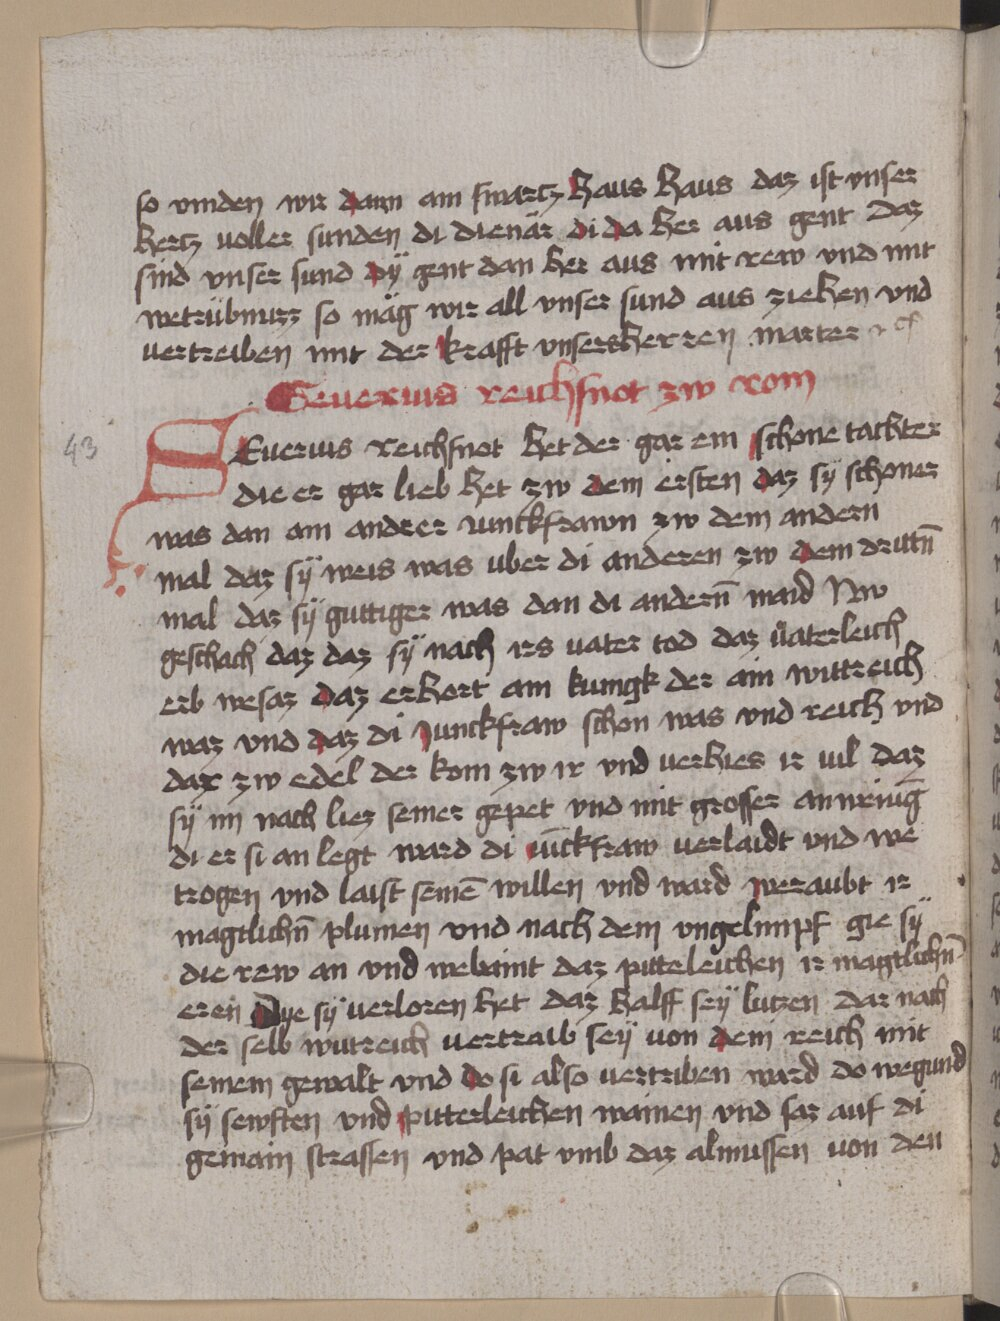 so vinden wir dann ain swarcz haus haus daz ist vnser
hercz voller sunden di dienär di da her aus gent daz
sind vnser sund dÿ gent dan her aus mit rew vnd mit
wetrübnuzz so mäg wir all vnser sund aus ziehen vnd
vertreiben mit der krafft vnsers herren marter
Seuerius reichsnot zw rom
43
SEuerius reichsnot het der gar ein schone tachter
die er gar lieb het zw dem ersten daz sÿ schoner
was dan ain andrer iunckfrawn zw dem andern
mal daz sÿ weis was vber di anderen zw dem drittn̄
mal daz sÿ guttiger was dan di andern̄ maid Nw
geschach daz daz sÿ nach irs uater tod daz väterleich
erb wesaz daz erhort ain kunigk der ain wittreich
waz vnd daz di Junckfraw schon was vnd reich vnd
dar zw edel der kom zw ir vnd uerhies ir uil daz
sÿ im nach liez seiner gepet vnd mit grosser
di er si an legt ward di iūckfraw uerlaidt vnd we
trogen vnd laist seinē willen vnd ward weraubt ir
magtlichn̄ plumen vnd nach dem vngelimpf gie sÿ
die rew an vnd webaint daz pitterleichen ir magtlichn̄
eren Dye sÿ uerloren het daz half seÿ luczen dar nach
der selb wutreich uertraib seÿ von dem reich mit
seinem gewalt vnd do si also uertriben ward do wegund
sÿ sewften vnd pitterleichen wainen vnd saz auf di
gemain strassen vnd pat vmb daz almussen von den